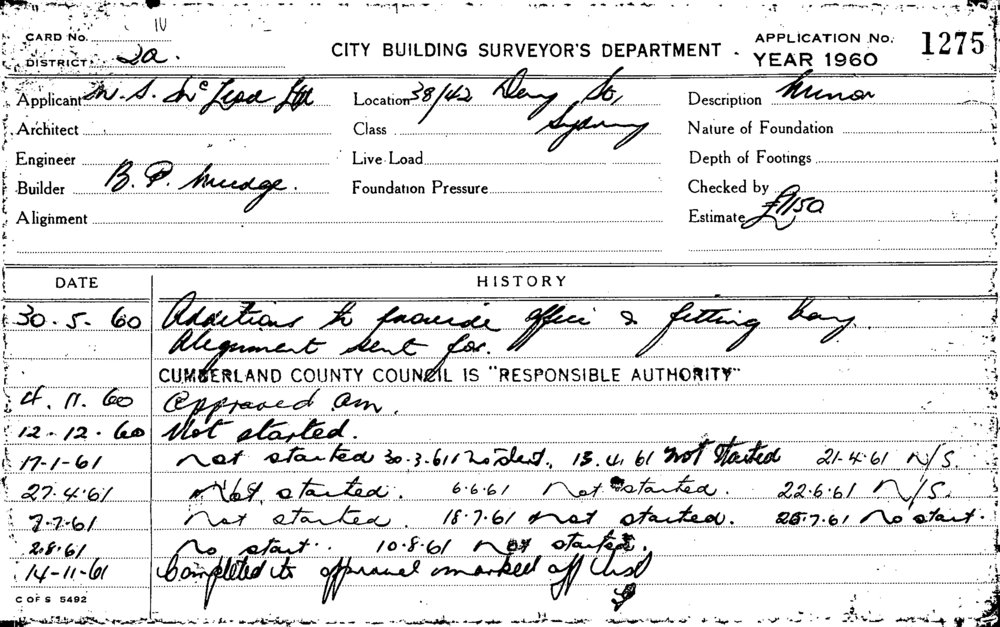 CARD No. IV
DISTRICT 2a.
CITY BUILDING SURVEYOR'S DEPARTMENT.
APPLICATION No. 1275
YEAR 1960
Applicant W. S. McLeod Ltd Location 38/42 St, Description Minor
Architect Class Sydney Nature of Foundation
Engineer Live Load Depth of Footings
Builder B. P. Mudge. Foundation Pressure Checked by
Alignment Estimate £1150
DATE HISTORY
30.5.60 Additions to provide office & fitting bay.
Alignment sent for.
CUMBERLAND COUNTY COUNCIL IS "RESPONSIBLE AUTHORITY"
4.11.60 Approved am.
12-12-60 Not started.
17-1-61 not started 30-3-61 No start. 13.4.61 not started 21-4-61 N/S.
27.4.61 Not started. 6.6.61 Not started. 22.6.61 N/S.
7-7-61 Not started. 18.7.61 Not started. 26.7.61 No start.
2.8.61 No start. 10.8.61 Not started.
14-11-61 Completed to approval & marked off list
C OF S 5492